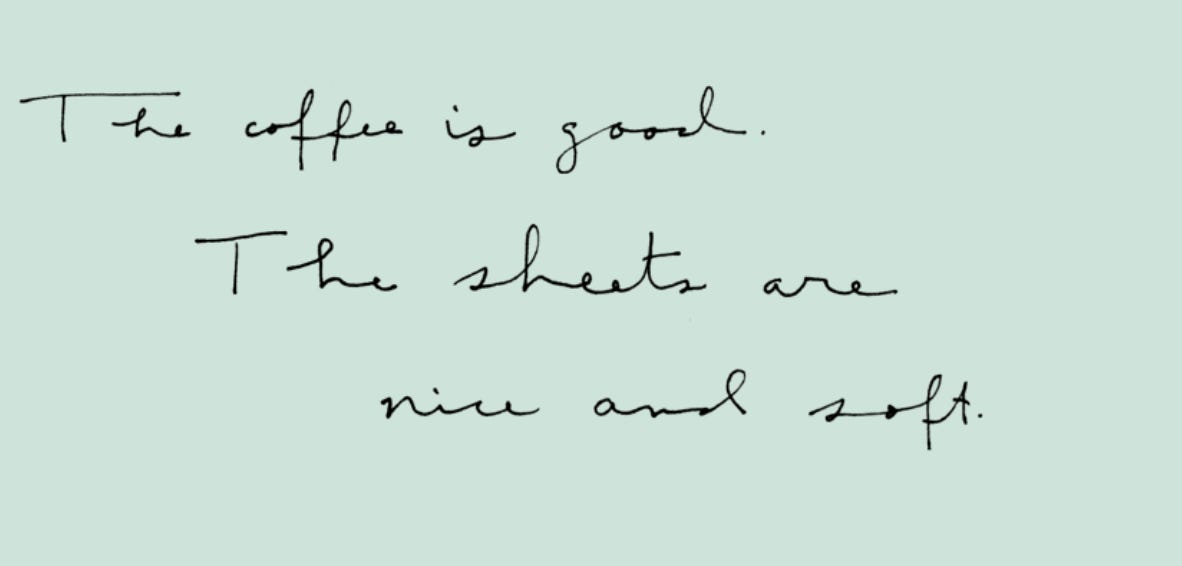 The coffee is good.
The sheets are
nice and soft.